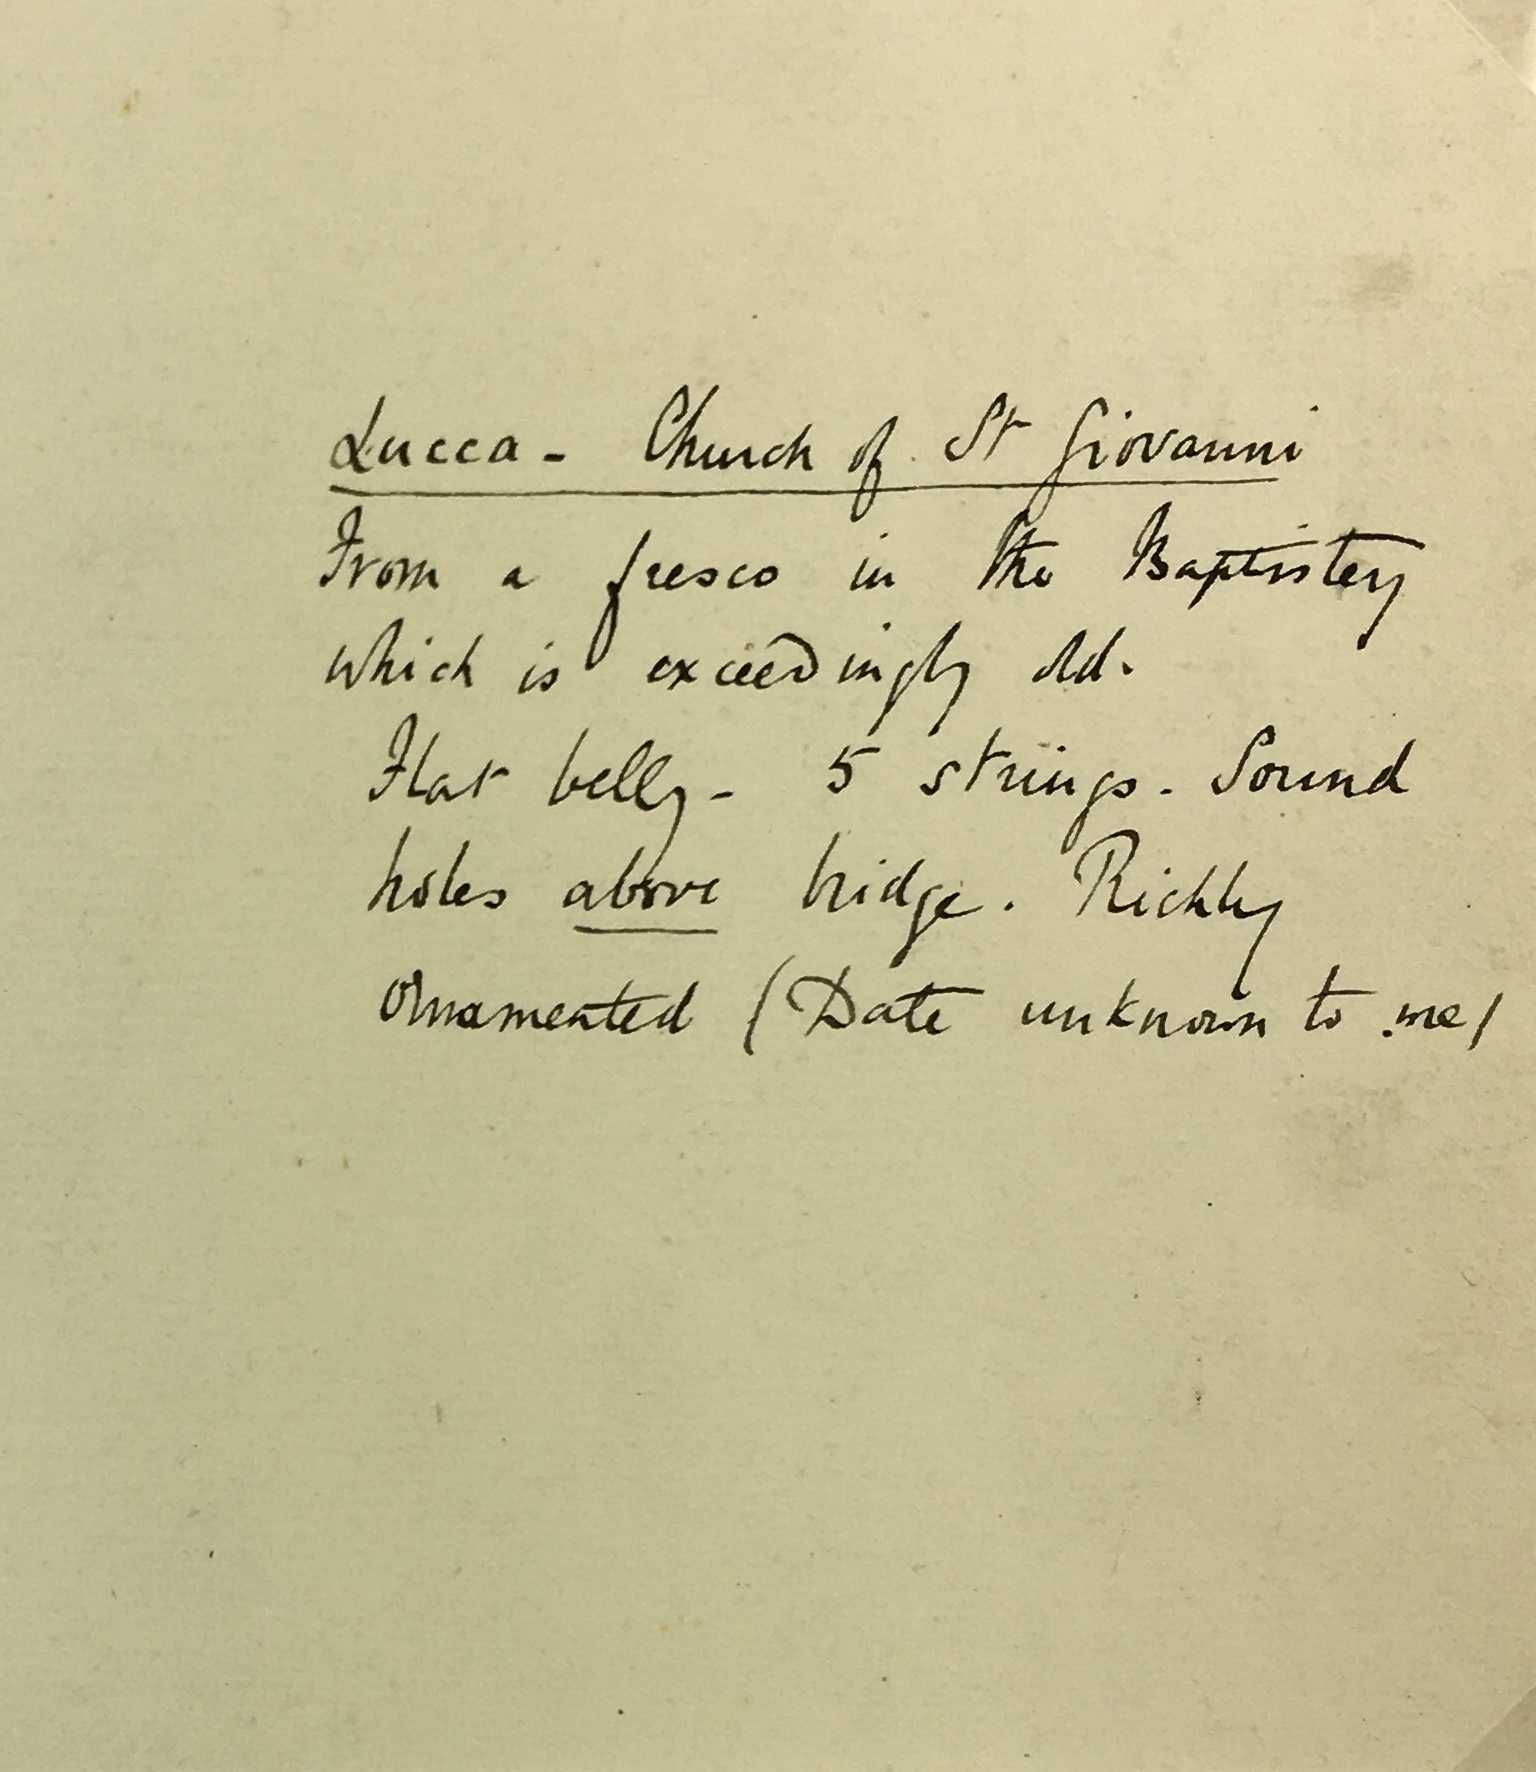 Lucca - Church of St Giovanni
From a fresco in the Baptistery
which is exceedingly old.
Flat belly - 5 strings. Sound
holes above bridge. Richly
ornamented (Date unknown to me)